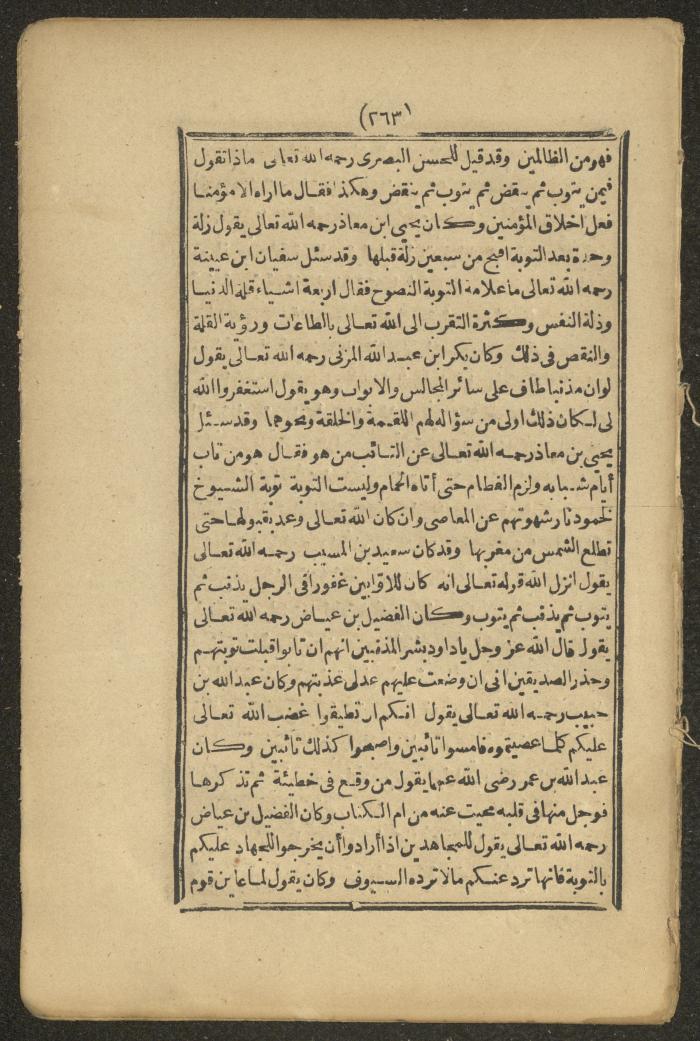 (٢٦٣)
فهو من الظالمين وقد قيل للحسن البصرى رحمه الله تعالى ماذا تقول
فيمن يتوب ثم ينقض ثم يتوب ثم ينقض وهكذا فقال ما اراه الا مؤمنا
فعل اخلاق المؤمنين وكان يحيى ابن معاذ رحمه الله تعالى يقول زلة
وحدة بعد التوبة اقبح من سبعين زلة قبلها وقد سئل سفيان ابن عيينة
رحمه الله تعالى ما علامة التوبة النصوح فقال اربعة اشياء قلة الدنيا
وذلة النفس وكثرة التقرب الى الله تعالى بالطاعات ورؤية القلة
والنقص فى ذلك وكان بكر ابن عبد الله المزنى رحمه الله تعالى يقول
لو ان مذنبا طاف على سائر المجالس والابواب وهو يقول استغفروا الله
لى لكان ذلك اولى من سؤاله لهم اللقمة والخلقة ونحوهما وقد سئل
يحيى بن معاذ رحمه الله تعالى عن التائب من هو فقال هو من تاب
أيام شبابه ولزم الفطام حتى أتاه الحمام وليست التوبة توبة الشيوخ
لخمود نار شهوتهم عن المعاصى وان كان الله تعالى وعد بقبولها حتى
تطلع الشمس من مغربها وقد كان سعيد بن المسيب رحمه الله تعالى
يقول انزل الله قوله تعالى انه كان للاوابين غفورا فى الرجل يذنب ثم
يتوب ثم يذنب ثم يتوب وكان الفضيل بن عياض رحمه الله تعالى
يقول قال الله عز وجل ياداود بشر المذنبين انهم ان تابوا قبلت توبتهم
وحذر الصديقين انى ان وضعت عليهم عدلى عذبتهم وكان عبد الله بن
حبيب رحمه الله تعالى يقول انكم ان تطيقوا غضب الله تعالى
عليكم كلما عصيتموه فامسوا تائبين واصبحوا كذلك تائبين وكان
عبد الله بن عمر رضى الله عنهما يقول من وقع فى خطيئة ثم تذكرها
فوجل منها فى قلبه محيت عنه من ام الكتاب وكان الفضيل بن عياض
رحمه الله تعالى يقول للمجاهدين اذا أرادوا أن يخرجوا للجهاد عليكم
بالتوبة فانها ترد عنكم مالا ترده السيوف وكان يقول لما عاين قوم